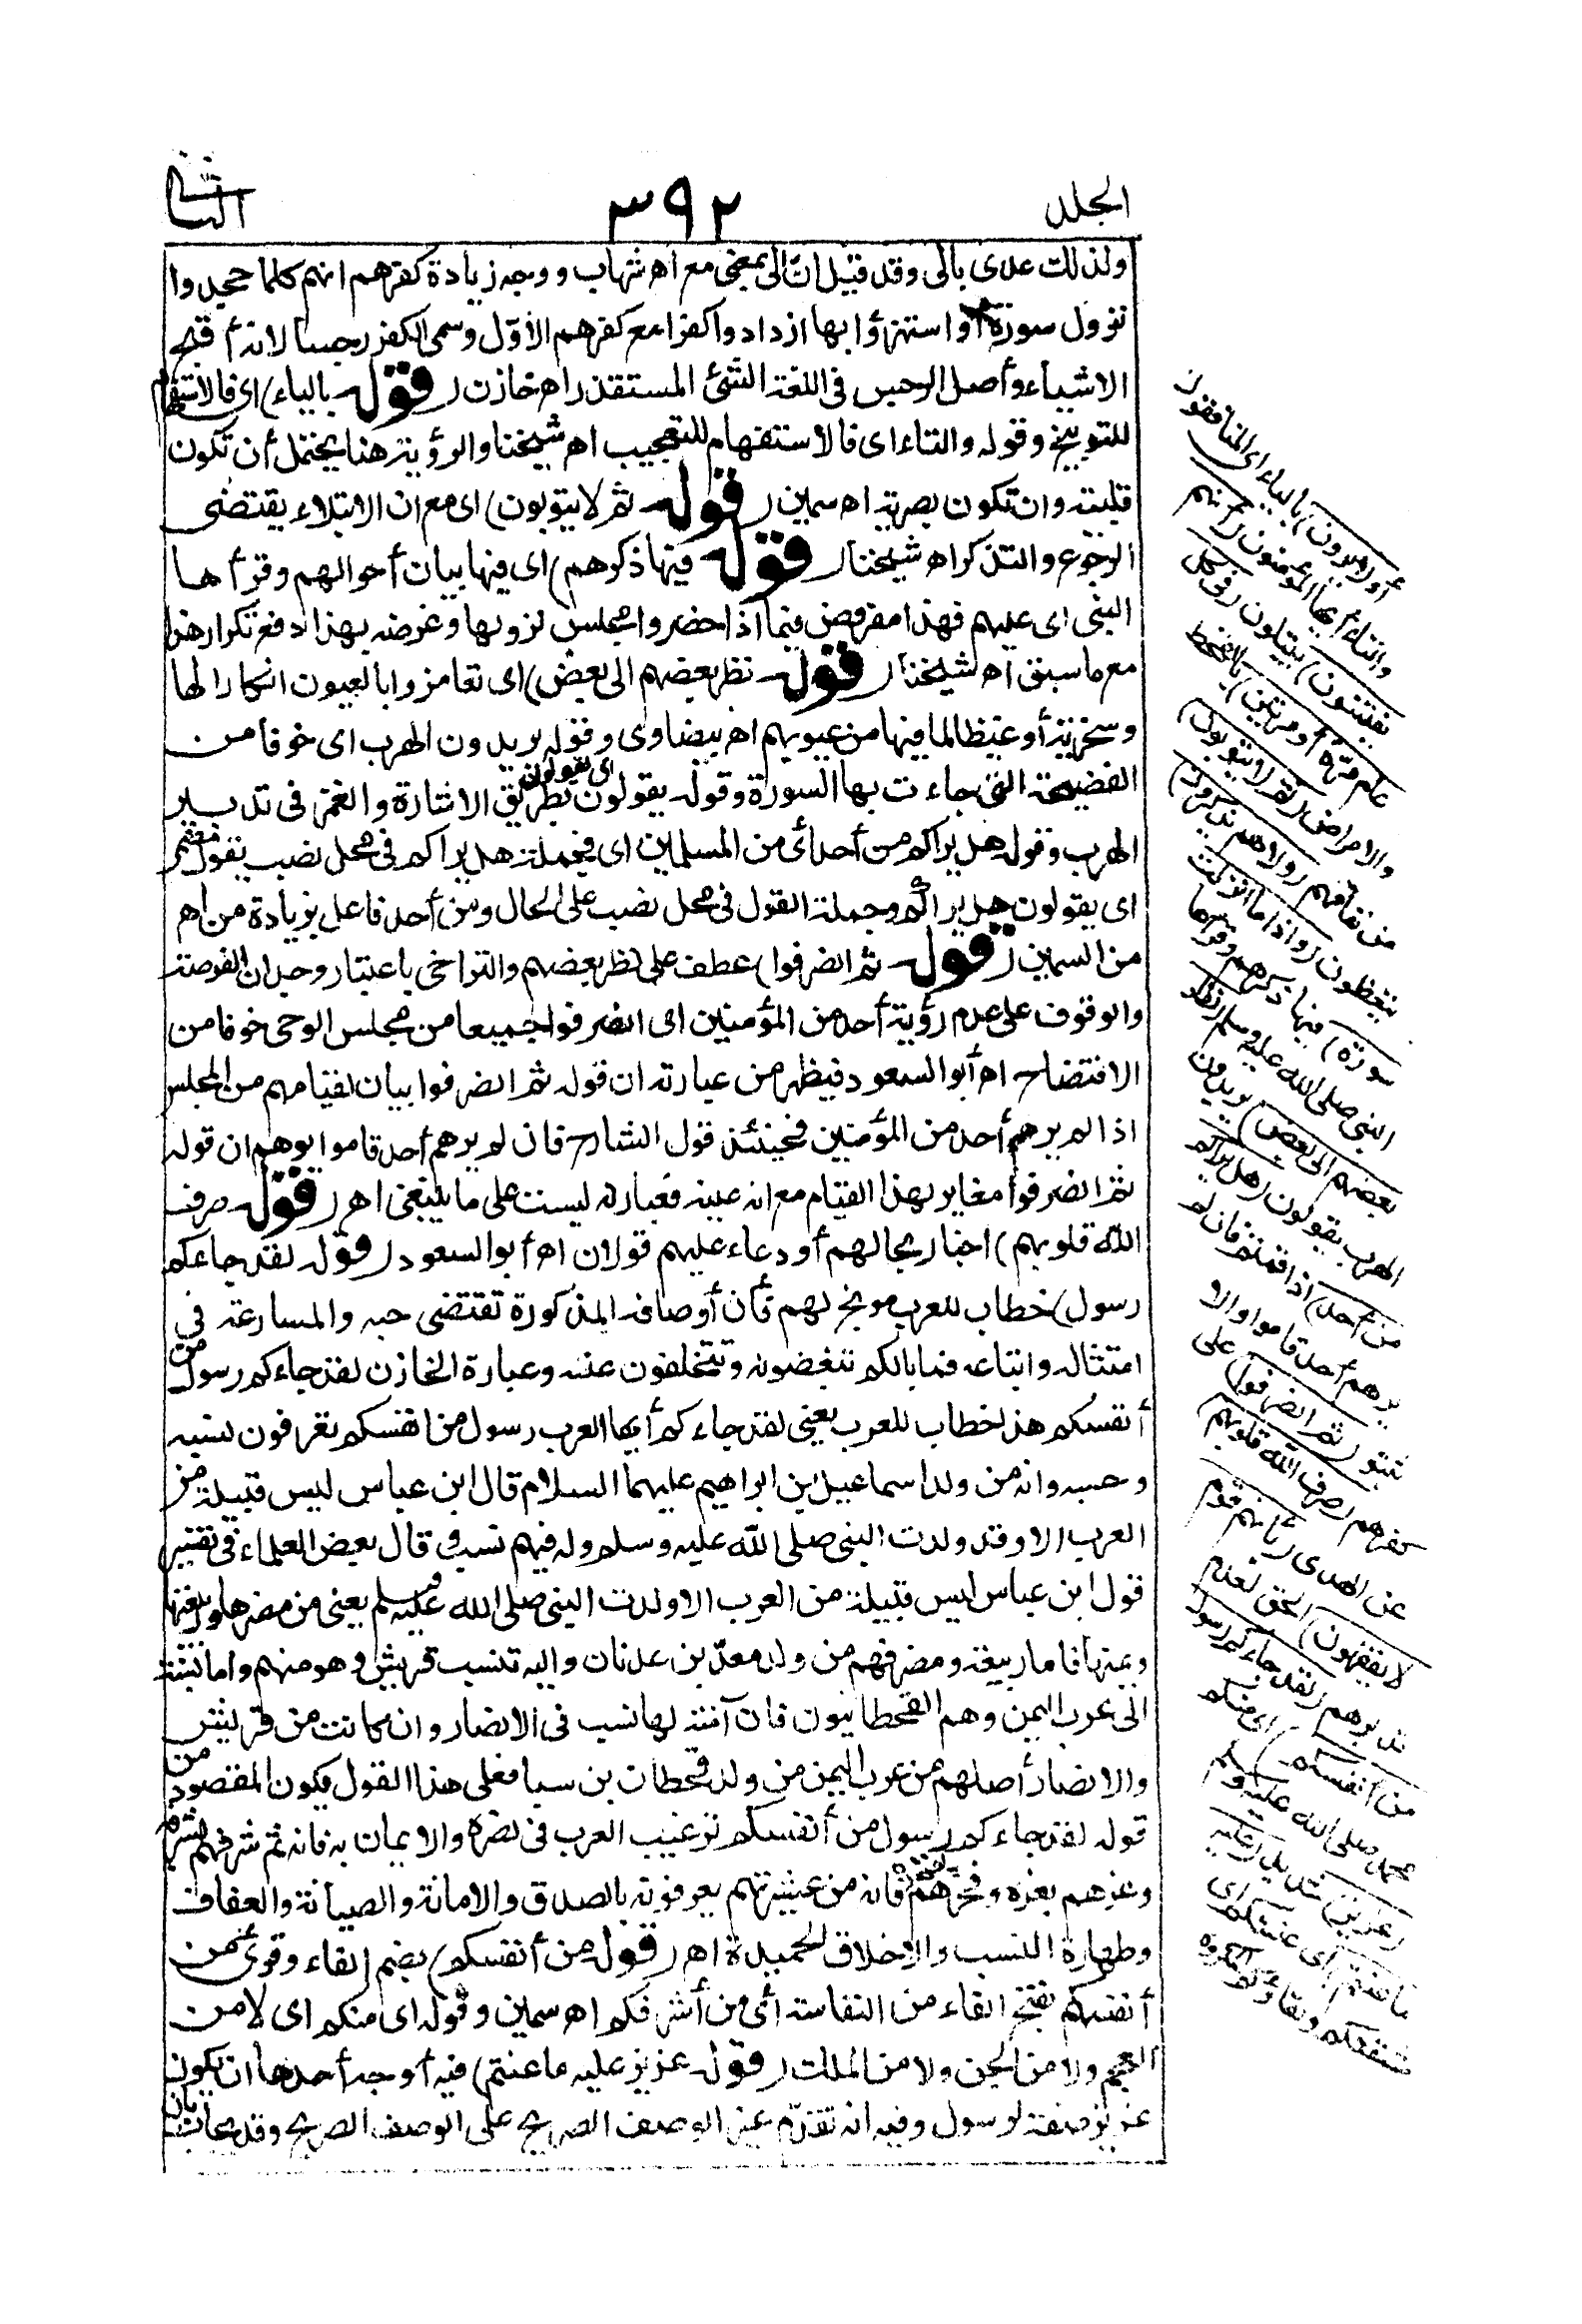 الجلد
٣٩٢
الثانى
ولذلك عدى بالى وقد قيل ان الى بمعنى مع اه شهاب ووجه زيادة كفرهم انهم كلما جحدوا
نزول سورة أو استهزؤا بها ازدادوا كفرا مع كفرهم الأوّل وسمى الكفر رجسا لانه أقبح
الاشياء وأصل الرجس فى اللغة الشئ المستقذر اه خازن (قوله بالياء) اى فالاستفهام
للتوبيخ وقوله والتاء اى فالاستفهام للتعجيب اه شيخنا والرؤية هنا يحتمل أن تكون
قلبية وان تكون بصرية اه سمين (قوله ثم لا يتوبون) اى مع ان الابتلاء يقتضى
الرجوع والتذكر اه شيخنا (قوله فيها ذكرهم) اى فيها بيان أحوالهم وقرأها
النبى اى عليهم فهذا مفروض فيما اذا حضروا مجلس نزولها وغرضه بهذا دفع تكرار هذا
مع ما سبق اه شيخنا (قوله نظر بعضهم الى بعض) اى تغامزوا بالعيون انكارا لها
وسخرية أو غيظا لما فيها من عيوبهم اه بيضاوى وقوله يريدون الهرب اى خوفا من
الفضيحة التى جاءت بها السورة وقوله يقولون اى يقولون بطريق الاشارة والغمز فى تدبير
الهرب وقوله هل يراكم من أحد أى من المسلمين اى فجملة هل يراكم فى محل نصب بقول مضمر
اى يقولون هل يراكم وجملة القول فى محل نصب على الحال ومن أحد فاعل بزيادة من اه
من السمين (قوله ثم انصرفوا) عطف على نظر بعضهم والتراخى باعتبار وجدان الفرصة
والوقوف على عدم رؤية أحد من المؤمنين اى انصرفوا جميعا من مجلس الوحى خوفا من
الافتضاح اه أبو السعود فيظهر من عبارته ان قوله ثم انصرفوا بيان لقيامهم من المجلس
اذا لم يرهم أحد من المؤمنين فحينئذ قول الشارح فان لم يرهم أحد قاموا يوهم ان قوله
ثم انصرفوا مغاير لهذا القيام مع انه عينه فعبارته ليست على ما ينبغى اه (قوله صرف
الله قلوبهم) اخبار بحالهم أو دعاء عليهم قولان اه أبو السعود (قوله لقد جاءكم
رسول) خطاب للعرب موبخ لهم فأن أوصافه المذكورة تقتضى حبه والمسارعة فى
امتثاله واتباعه فما بالكم تبغضونه وتتخلفون عنه وعبارة الخازن لقد جاءكم رسول من
أنفسكم هذا خطاب للعرب يعنى لقد جاءكم أيها العرب رسول من انفسكم تعرفون نسبه
وحسبه وانه من ولد اسماعيل بن ابراهيم عليهما السلام قال ابن عباس ليس قبيلة من
العرب الا وقد ولدت النبى صلى الله عليه وسلم وله فيهم نسب وقال بعض العلماء فى تفسير
قول ابن عباس ليس قبيلة من العرب الا ولدت النبى صلى الله عليه وسلم يعنى من مضرها وربيعتها
ويمنها فاما ربيعة ومضر فهم من ولد معدّ بن عدنان واليه تنسب قريش وهو منهم واما نسبته
الى عرب اليمن وهم القحطانيون فان آمنة لها نسب فى الانصار وان كانت من قريش
والانصار أصلهم من عرب اليمن من ولد قحطان بن سبا فعلى هذا القول يكون المقصود من
قوله لقد جاءكم رسول من أنفسكم ترغيب العرب فى نصره والايمان به فانه تم شرفهم بشرفه
وعزهم بعزه وفخرهم بفخره فانه من عشيرتهم يعرفونه بالصدق والامانة والصيانة والعفاف
وطهارة النسب والاخلاق الحميدة اه (قوله من أنفسكم) بضم الفاء وقرئ من
أنفسكم بفتح الفاء من النفاسة أى من أشرفكم اه سمين وقوله اى منكم اى لا من
العجم ولا من الجن ولا من الملك (قوله عزيز عليه ما عنتم) فيه أوجه أحدها ان يكون
عزيز صفة لرسول وفيه انه تقدّم غير الوصف الصريح على الوصف الصريح وقد يجاب بان
أولا يرون) بالياء اى المنافقون
والتاء أيها المؤمنون (أنهم
يفتنون) يبتلون (فى كل
عام مرة أو مرتين) بالقحط
والامراض (ثم لا يتوبون)
من نفاقهم (ولا هم يذكرون)
يتعظون (واذا ما انزلت
سورة) فيها ذكرهم وقرأها
النبى صلى الله عليه وسلم (نظر
بعضهم الى بعض) يريدون
الهرب يقولون (هل يراكم
من أحد) اذا قمتم فان لم
يرهم أحد قاموا والا
ثبتوا (ثم انصرفوا) على
كفرهم (صرف الله قلوبهم)
عن الهدى (بأنهم قوم
لا يفقهون) الحق لعدم
تدبرهم (لقد جاءكم رسول
من أنفسكم) اى منكم
محمد صلى الله عليه وسلم
(عزيز) شديد (عليه
ما عنتم) اى عنتكم اى
مشقتكم ولقاؤكم المكروه